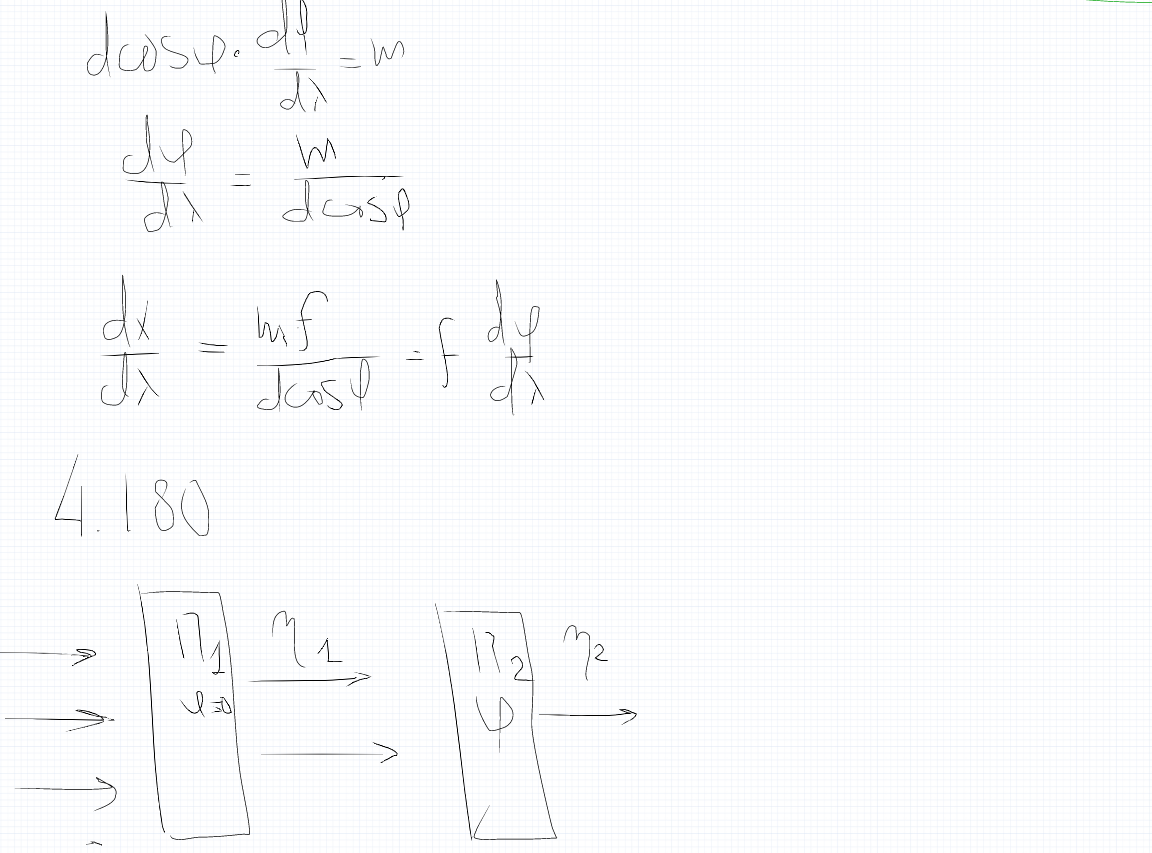 dcosφ · dφ/dλ = m
dφ/dλ = m/dcosφ
dx/dλ = mf/dcosφ = f dφ/dλ
4.180
П1 η1 П2 η2
φ=0 φ